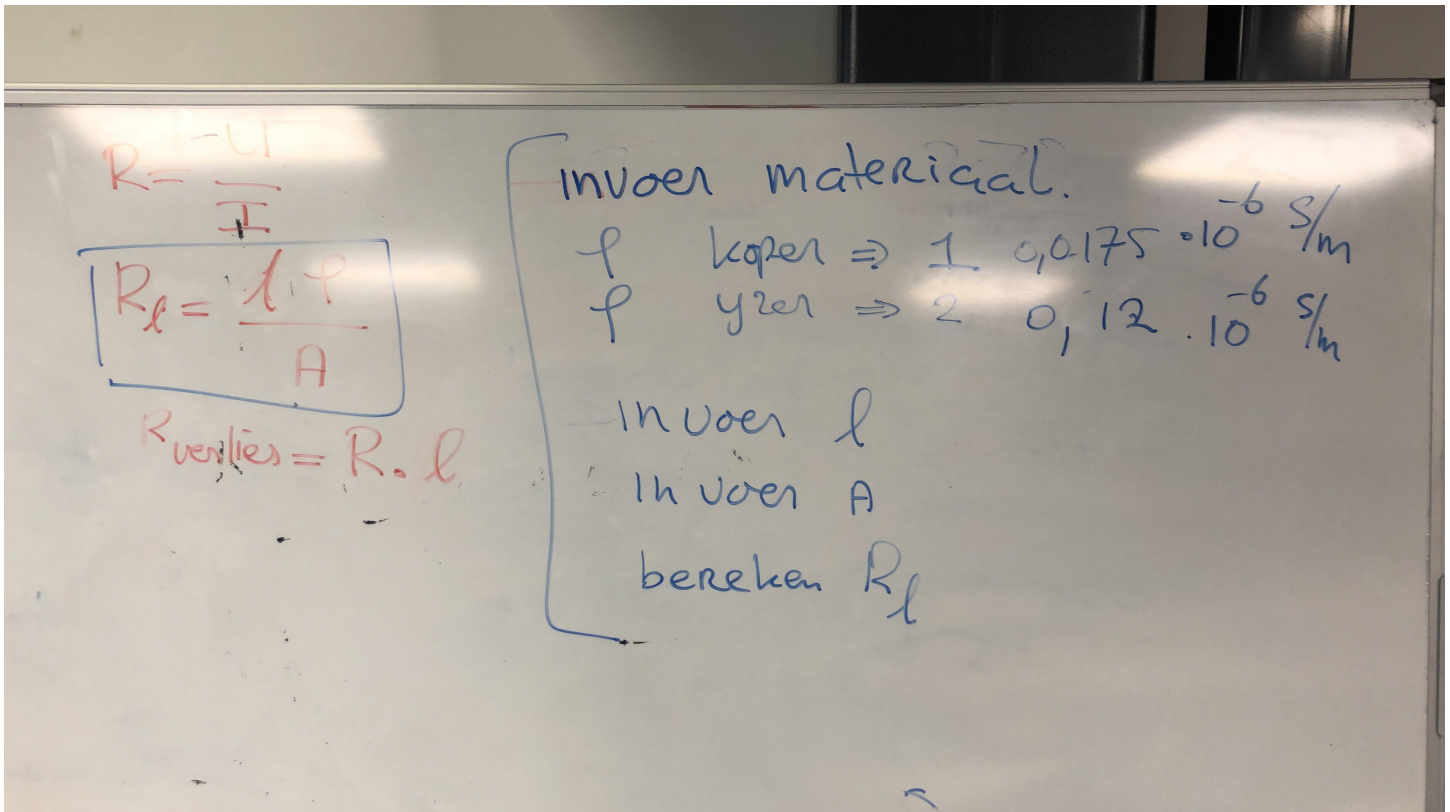 R = U / I
R_l = l · ρ / A
R verlies = R · l
invoer materiaal.
ρ koper ⇒ 1 0,0175 · 10^-6 S/m
ρ yzer ⇒ 2 0,12 · 10^-6 S/m
invoer l
invoer A
bereken R_l